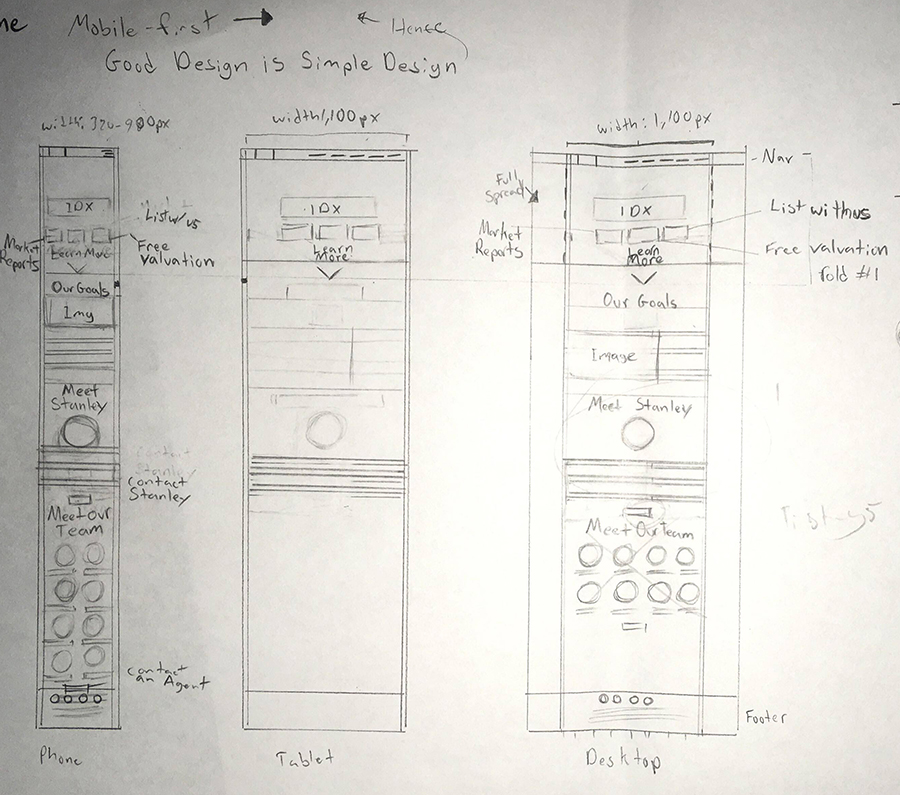 Mobile-first
Hence
Good Design is Simple Design
width: 320-900px
IDX
List w/ us
Market
Reports
Free
Valvation
Learn More
Our Goals
Img
Meet
Stanley
contact
Stanley
contact
Stanley
Meet Our
Team
contact
an Agent
Phone
width 1,100px
IDX
Learn
More
Tablet
width: 1,100px
Nav
Full
Spread
IDX
List with us
Market
Reports
Learn
More
Free valvation
fold #1
Our Goals
Image
Meet Stanley
Meet Our Team
Footer
Desktop